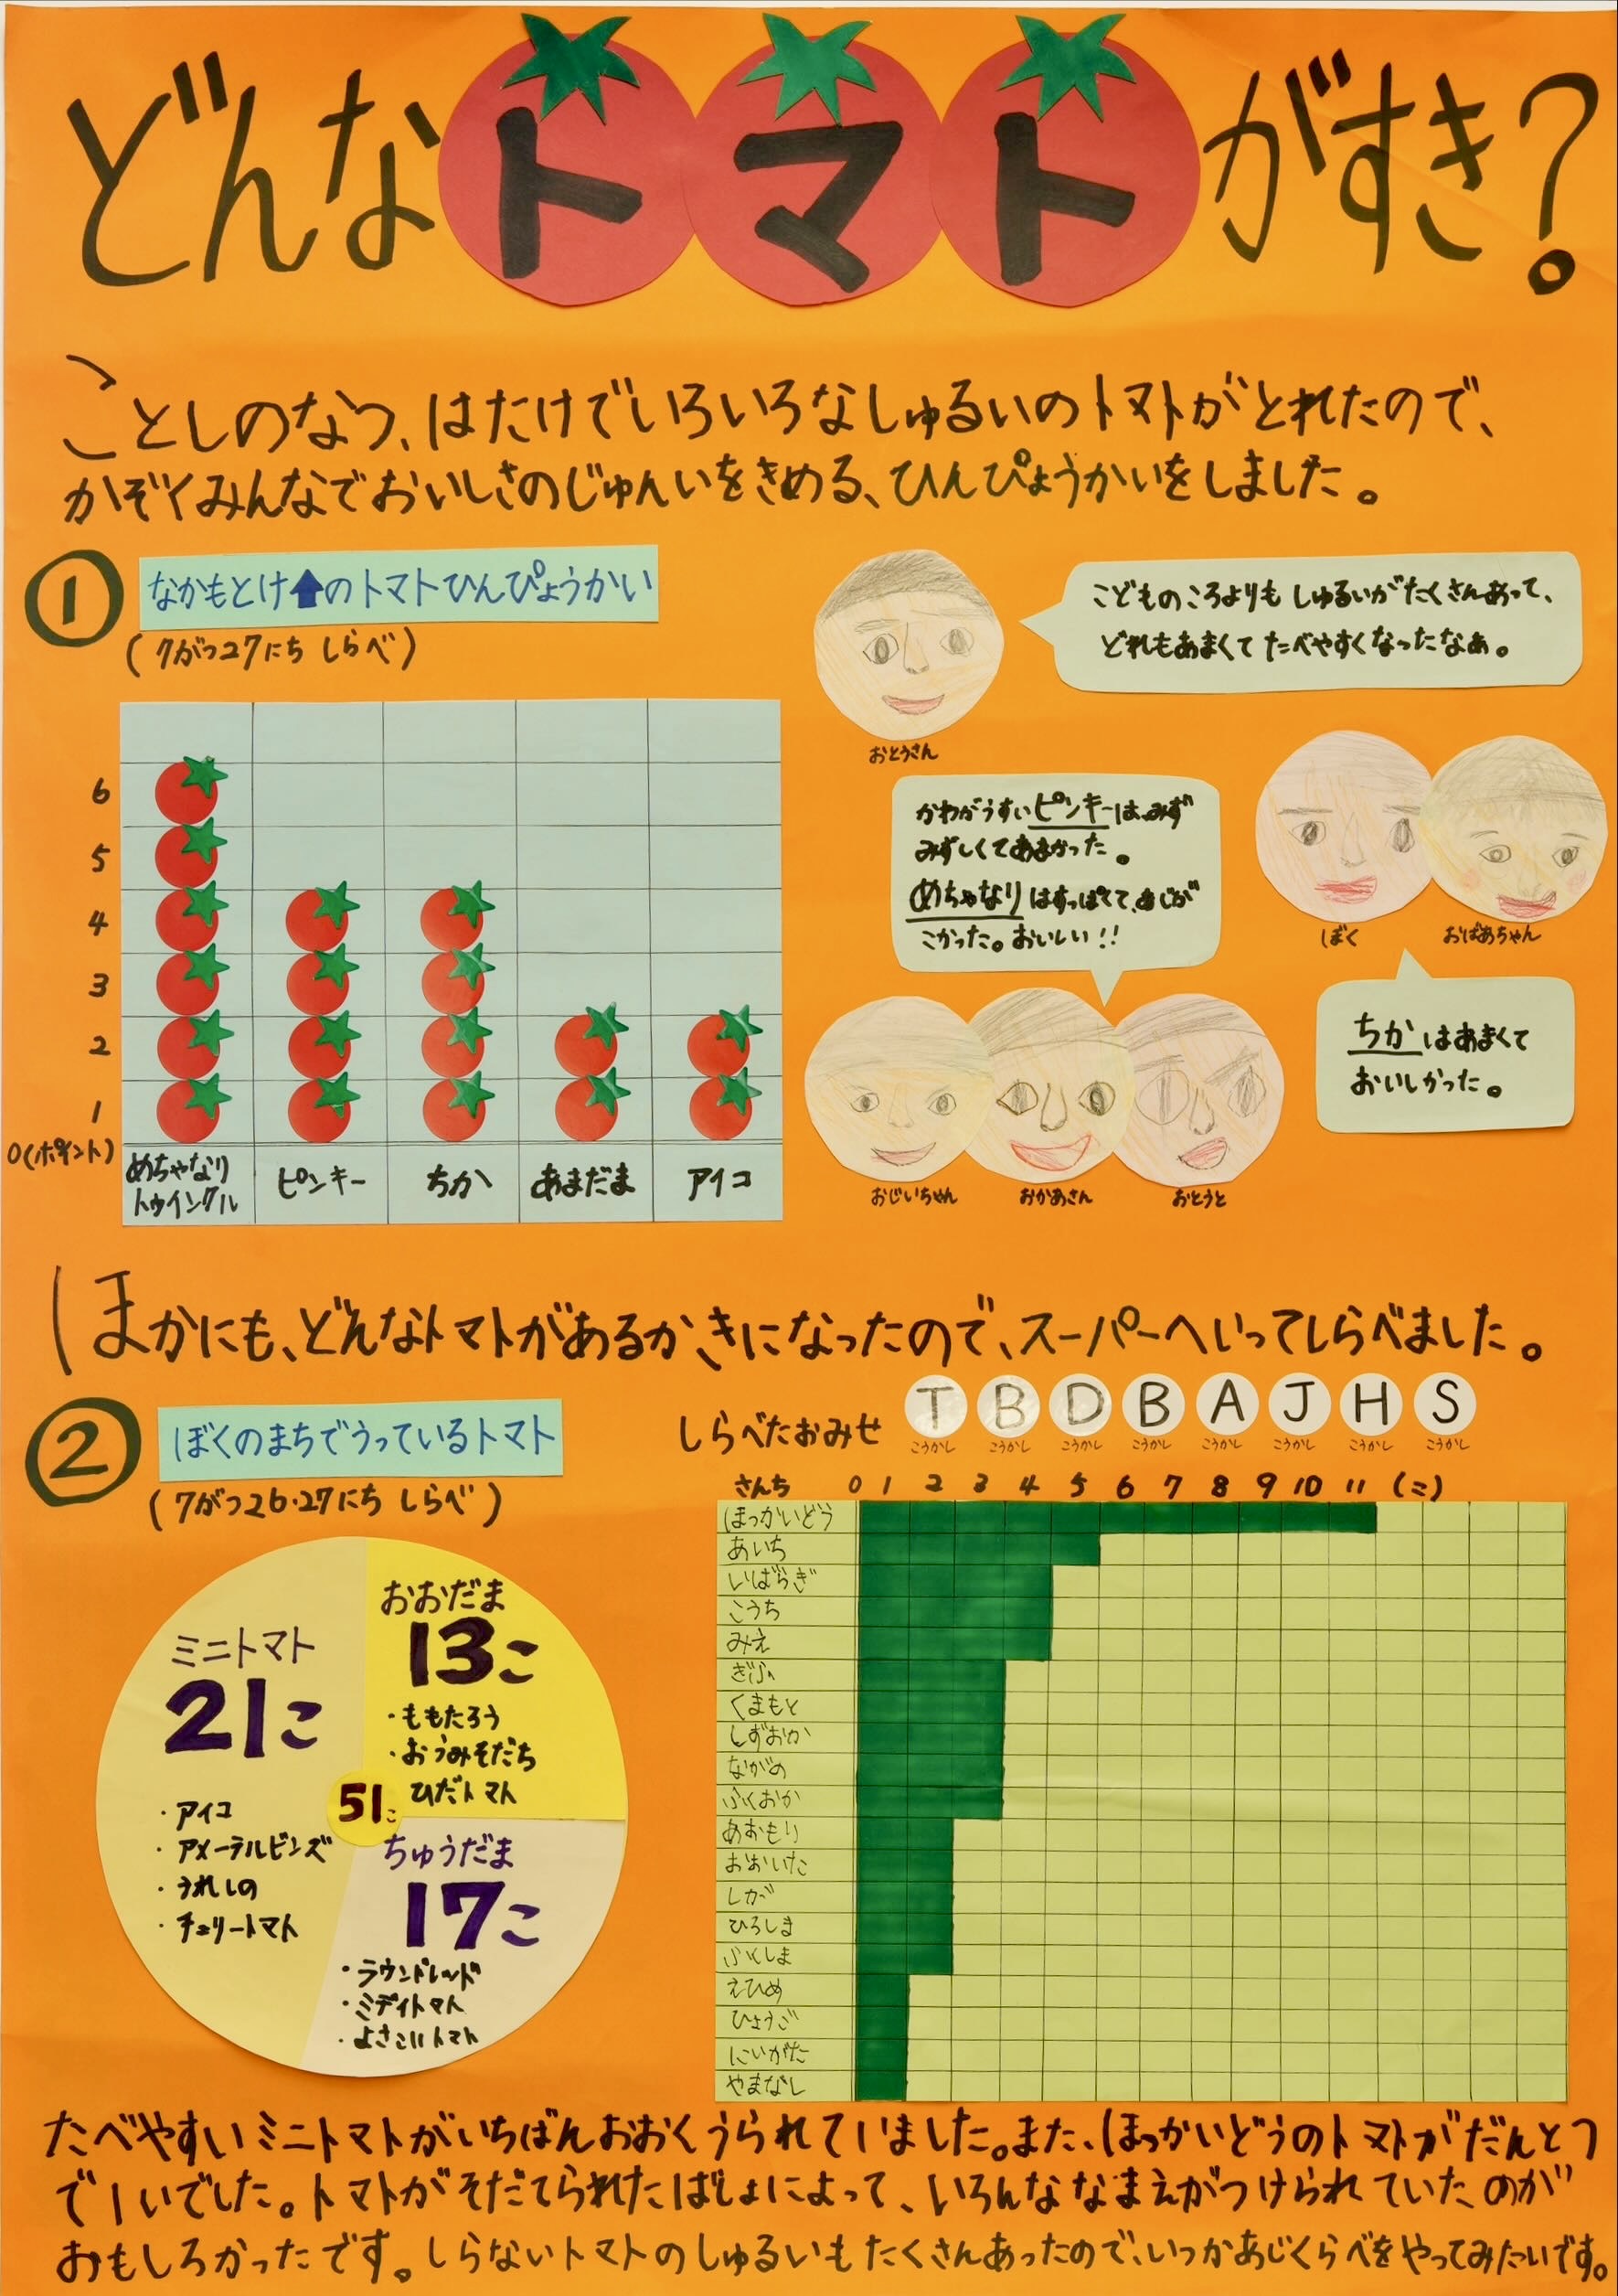 どんなトマトがすき?
ことしのなつ、はたけでいろいろなしゅるいのトマトがとれたので、
かぞくみんなでおいしさのじゅんいをきめる、ひんぴょうかいをしました。
1
なかもとけ⬆のトマトひんぴょうかい
(7がつ27にち しらべ)
6
5
4
3
2
1
0(ポイント)
めちゃなり
トゥインクル
ピンキー
ちか
あまだま
アイコ
こどものころよりも しゅるいがたくさんあって、
どれもあまくて たべやすくなったなあ。
おとうさん
かわがうすいピンキーは、みず
みずしくてあまかった。
めちゃなりはすっぱくて、あじが
こかった。おいしい!!
ぼく
おばあちゃん
ちかはあまくて
おいしかった。
おじいちゃん
おかあさん
おとうと
ほかにも、どんなトマトがあるか、きになったので、スーパーへいってしらべました。
2
ぼくのまちでうっているトマト
(7がつ26・27にち しらべ)
しらべたおみせ
T B D B A J H S
こうかし こうかし こうかし こうかし こうかし こうかし こうかし こうかし
おおだま
13こ
・ももたろう
・おうみそだち
ひだトマト
ミニトマト
21こ
・アイコ
・アメーラルビンズ
・うれしの
・チェリートマト
51こ
ちゅうだま
17こ
・ラウンドレッド
・ミディトマト
・よさこいトマト
さんち 0 1 2 3 4 5 6 7 8 9 10 11 (こ)
ほっかいどう
あいち
いばらぎ
こうち
みえ
ぎふ
くまもと
しずおか
ながの
ふくおか
あおもり
おおいた
しが
ひろしま
ふくしま
えひめ
ひょうご
にいがた
やまなし
たべやすいミニトマトがいちばんおおくうられていました。また、ほっかいどうのトマトがだんとつ
で1いでした。トマトがそだてられたばしょによって、いろんななまえがつけられていたのが
おもしろかったです。しらないトマトのしゅるいもたくさんあったので、いつかあじくらべをやってみたいです。